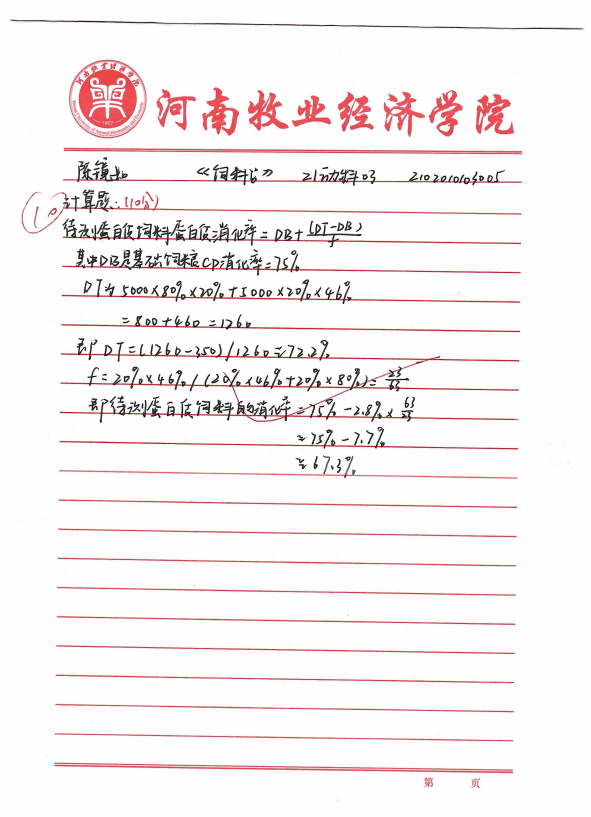 河南牧业经济学院
陈镜如 《饲料学》 21动科03 2102010103005
10
计算题:(10分)
待测蛋白质饲料蛋白质消化率=DB+(DT-DB)/f
其中DB是基础饲粮CP消化率=75%
DT为5000×80%×20%+5000×20%×46%
=800+460=1260
即DT=(1260-350)/1260=72.2%
f=20%×46%/(20%×46%+20%×80%)=23/63
即待测蛋白质饲料的消化率=75%-2.8%×63/23
=75%-7.7%
=67.3%
第 页